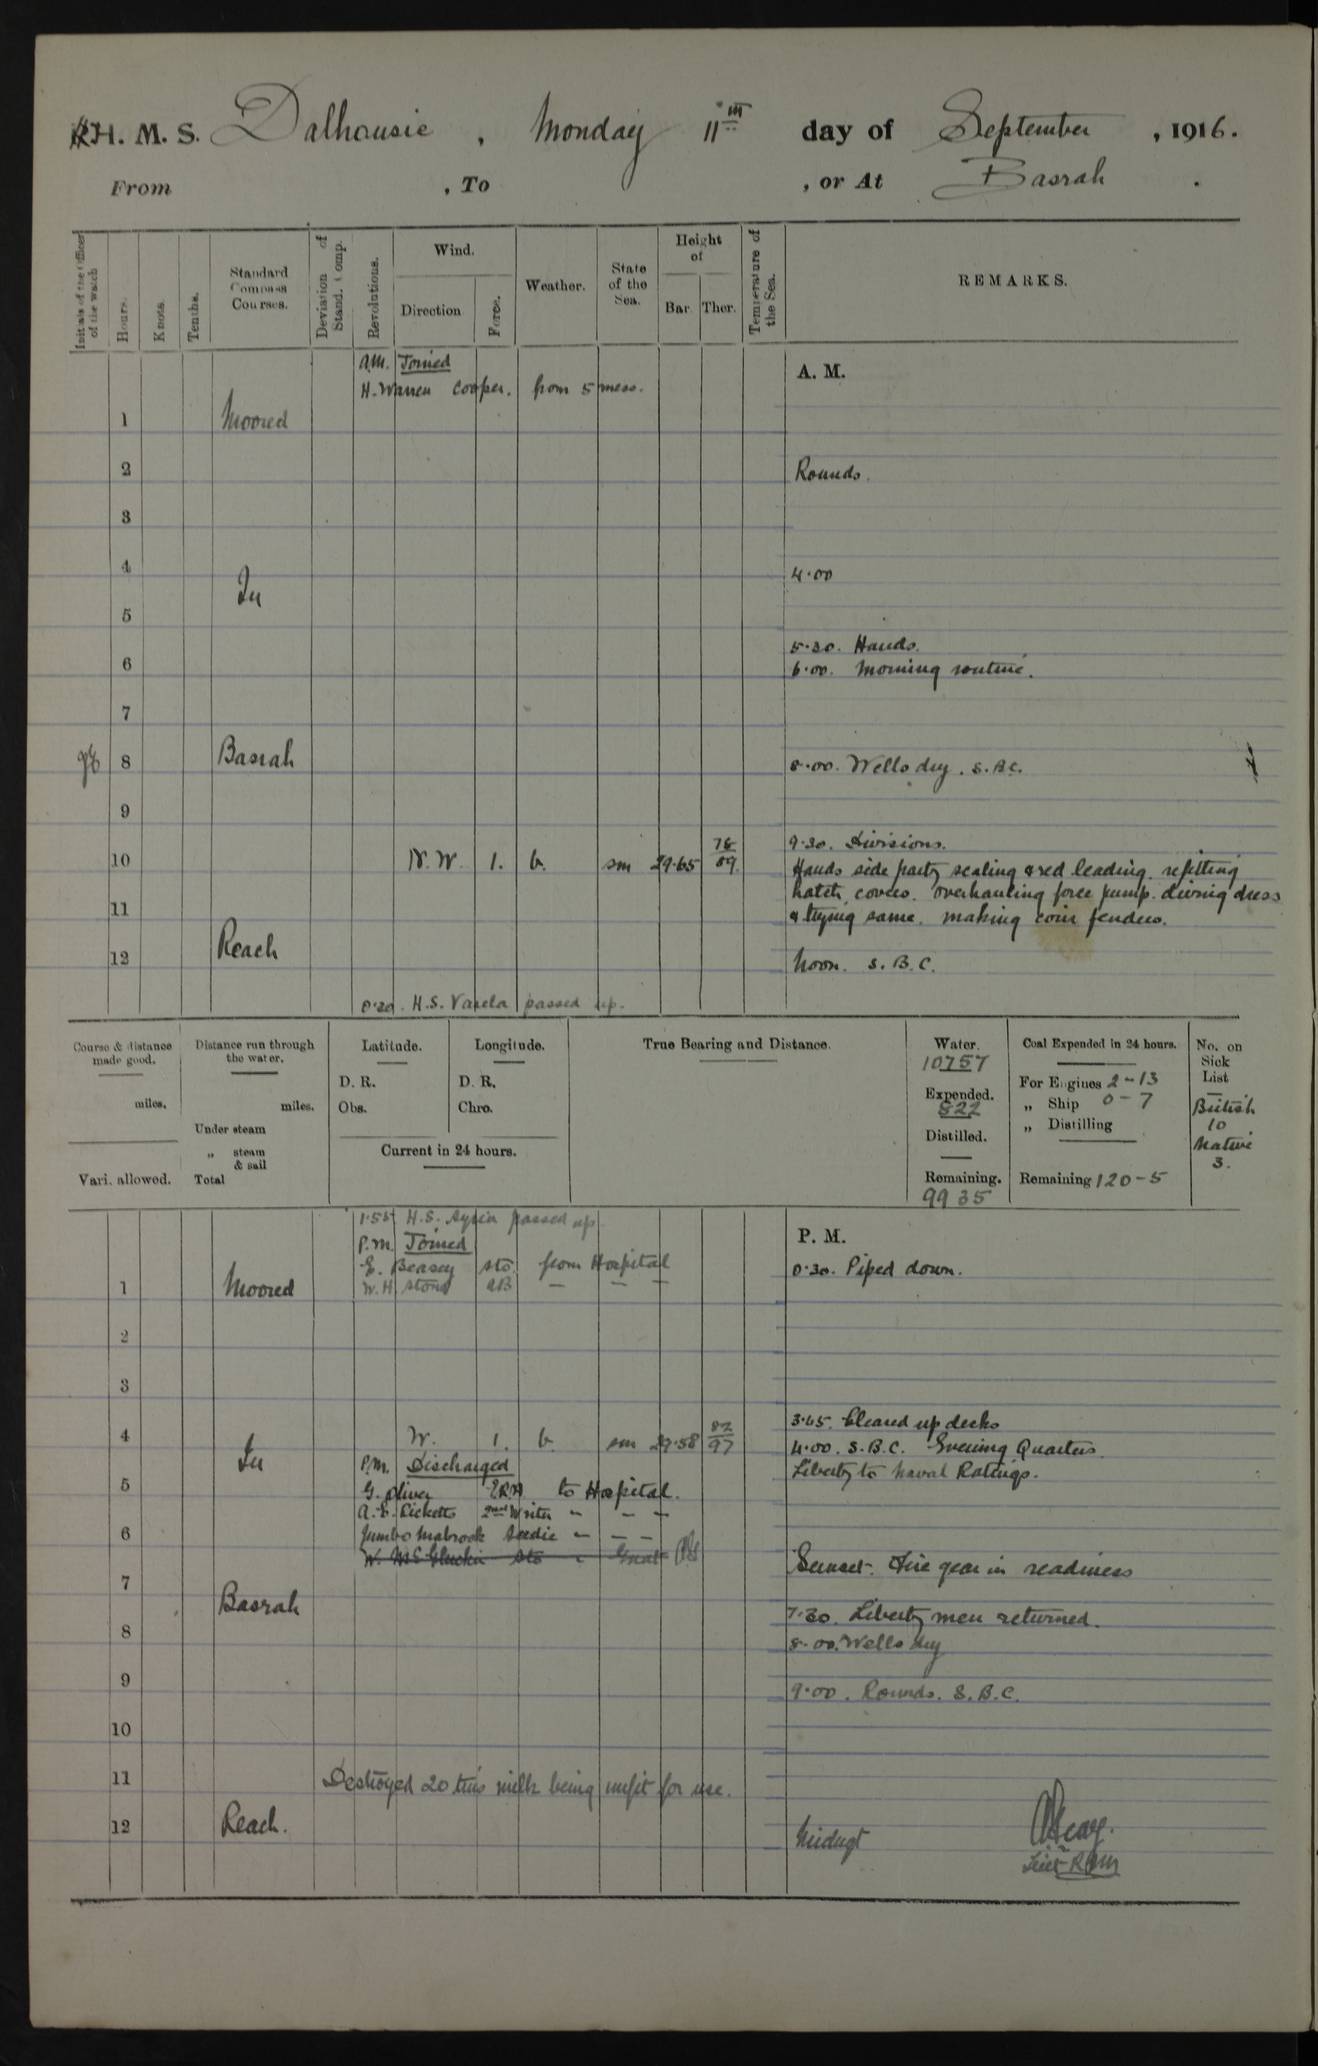 H. M. S. Dalhousie, Monday 11th day of September, 1916.
From , To , or At Basrah.
Initials of the Officer of the watch
Hours.
Knots.
Tenths.
Standard Compass Courses.
Deviation of Stand. Comp.
Revolutions.
Wind.
Direction
Force.
Weather.
State of the Sea.
Height of
Bar. Ther.
Temperature of the Sea.
REMARKS.
A.M. Joined
H. Warren Cooper. from 5 mess.
A. M.
1 Moored
2 Rounds.
3
4 4.00
In
5
5.30. Hands.
6 6.00. Morning routine.
7
8 Basrah 8.00. Wells dry. S.B.C.
9
9.30. Divisions.
10 N.W. 1. b. sm 29.65 78 89
Hands side party scaling & red leading. refitting
hatch covers. overhauling force pump. diving dress
11 & trying same. making coir fenders.
12 Reach Noon. S.B.C.
0.20. H.S. Varela passed up.
Course & distance made good.
miles.
Vari. allowed.
Distance run through the water.
miles.
Under steam
„ steam & sail
Total
Latitude.
D. R.
Obs.
Longitude.
D. R.
Chro.
Current in 24 hours.
True Bearing and Distance.
Water.
10757
Expended.
822
Distilled.
Remaining.
9935
Coal Expended in 24 hours.
For Engines 2-13
„ Ship 0-7
„ Distilling
Remaining 120-5
No. on Sick List
British
10
Native
3.
H.S. Syria passed up.
P.M. Joined
E. Beasey sto. from Hospital
W.H. Stone AB — — —
P. M.
0.30. Piped down.
1 Moored
2
3
3.45. Cleared up decks
4 W. 1. b. sm 29.58 82 97
4.00. S.B.C. Evening Quarters.
Liberty to Naval Ratings.
In
P.M. Discharged
5 G. Oliver ERA to Hospital.
A.E. Ricketts 2nd Writer " — —
6 Jumbo Mabrook Seedie " — —
Sunset. Fire gear in readiness
7
Basrah
7.30. Liberty men returned.
8 8.00. Wells dry
9 9.00. Rounds. S.B.C.
10
11 Destroyed 20 tins milk being unfit for use.
12 Reach. Midngt
Lieut RIM